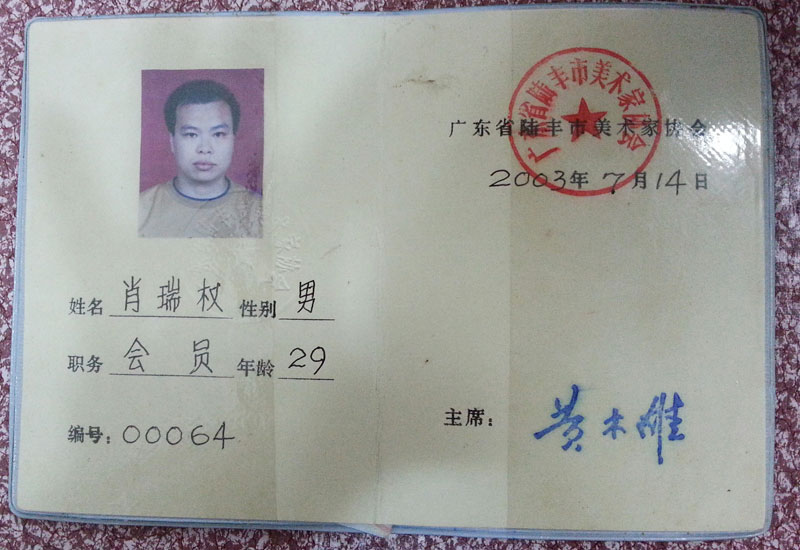 姓名 肖瑞权 性别 男
职务 会员 年龄 29
编号：00064
广东省陆丰市美术家协会
广东省陆丰市美术家协会
2003年7月14日
主席：黄木雄